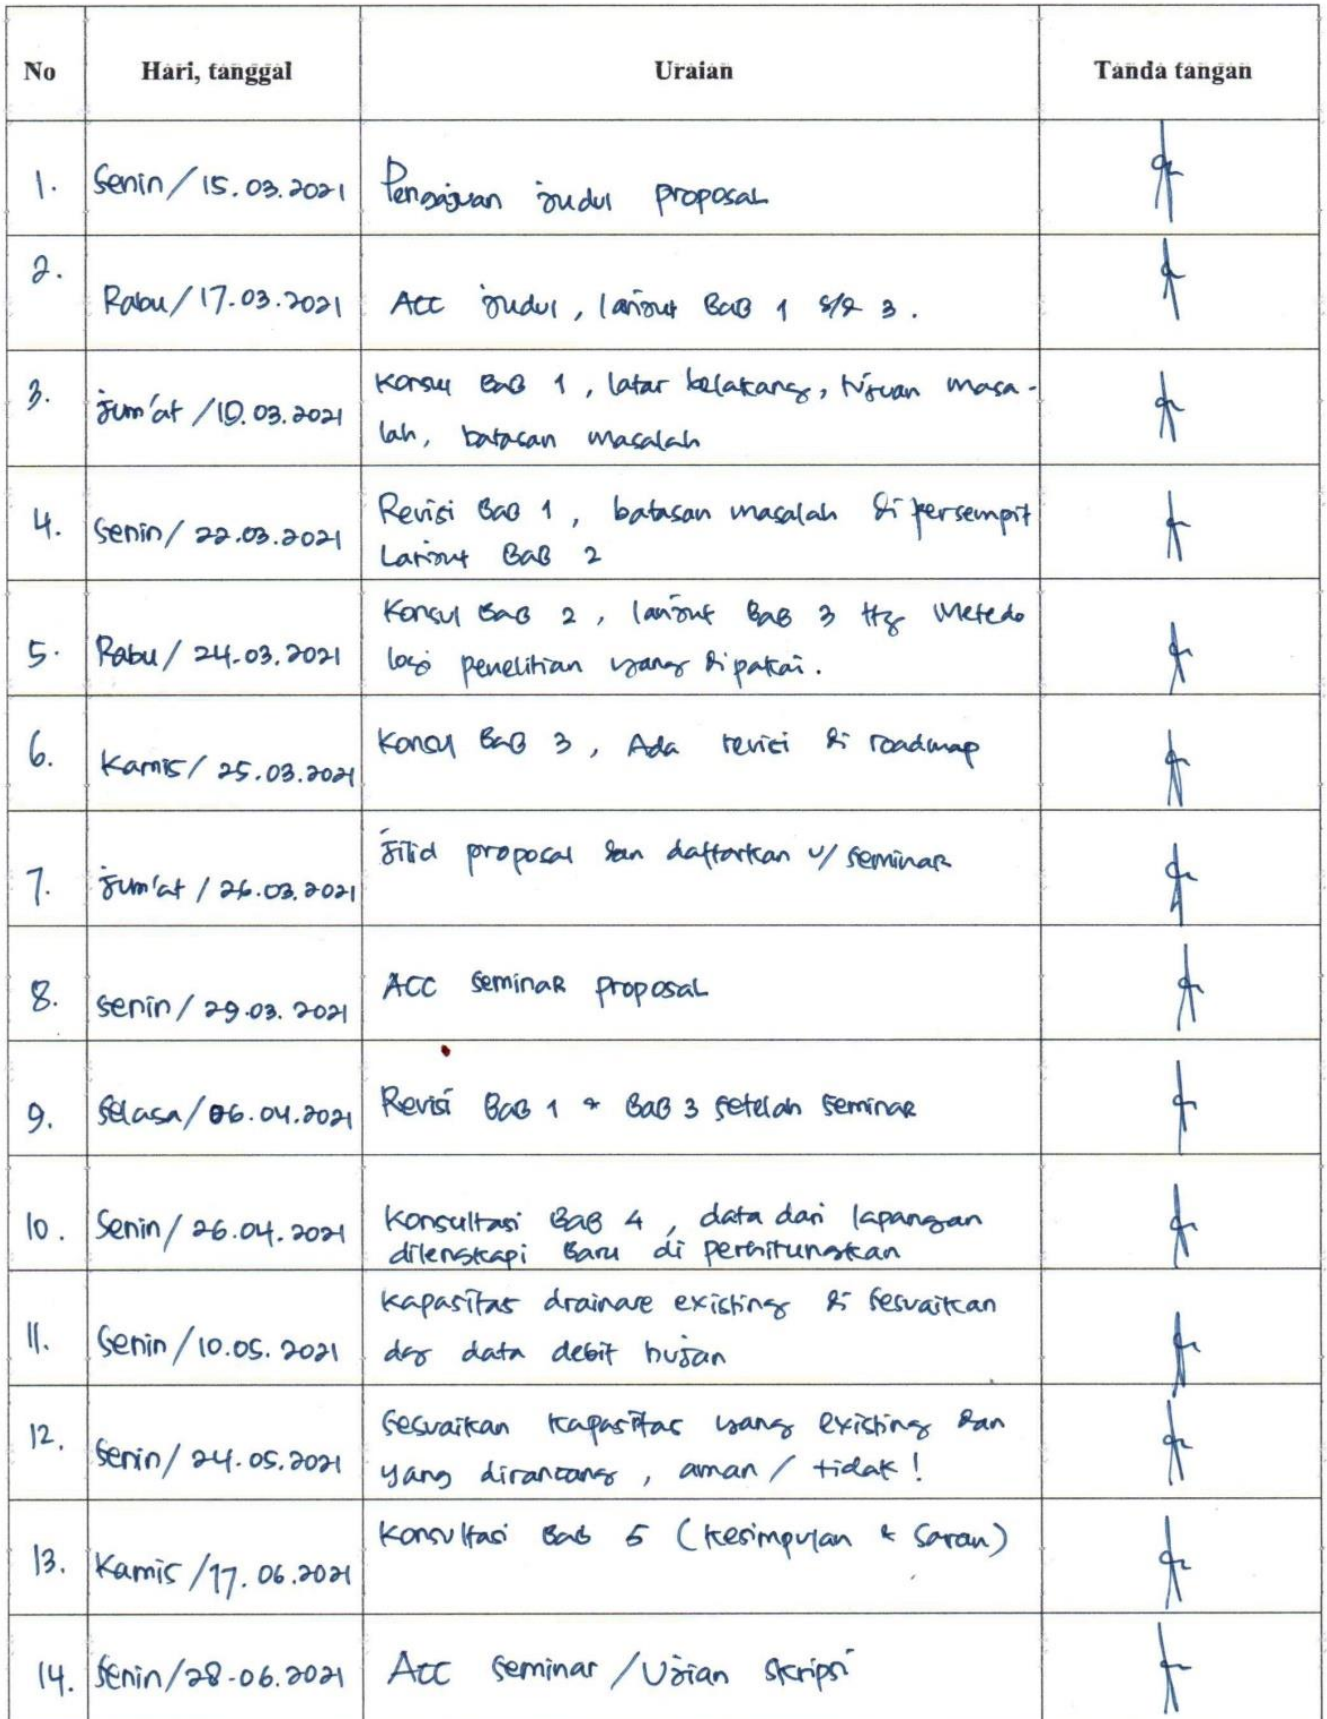 No Hari, tanggal Uraian Tanda tangan
1. Senin / 15.03.2021 Pengajuan judul proposal
2. Rabu / 17.03.2021 ACC judul, lanjut BAB 1 s/d 3.
3. Jum'at / 19.03.2021 Konsul BAB 1, latar belakang, tujuan masa-
lah, batasan masalah
4. Senin / 22.03.2021 Revisi BAB 1, batasan masalah di persempit
Lanjut BAB 2
5. Rabu / 24.03.2021 Konsul BAB 2, lanjut BAB 3 ttg Metedo
logi penelitian yang dipakai.
6. Kamis / 25.03.2021 Konsul BAB 3, Ada revisi di roadmap
7. Jum'at / 26.03.2021 Jilid proposal dan daftarkan u/ seminar
8. Senin / 29.03.2021 ACC seminar proposal
9. Selasa / 06.04.2021 Revisi BAB 1 & BAB 3 setelah seminar
10. Senin / 26.04.2021 Konsultasi BAB 4, data dari lapangan
dilengkapi Baru di perhitungkan
11. Senin / 10.05.2021 Kapasitas drainase existing di sesuaikan
dgs data debit hujan
12. Senin / 24.05.2021 Sesuaikan kapasitas yang existing dan
yang dirancang, aman / tidak!
13. Kamis / 17.06.2021 Konsultasi Bab 5 (Kesimpulan & Saran)
14. Senin / 28.06.2021 ACC seminar / Ujian Skripsi